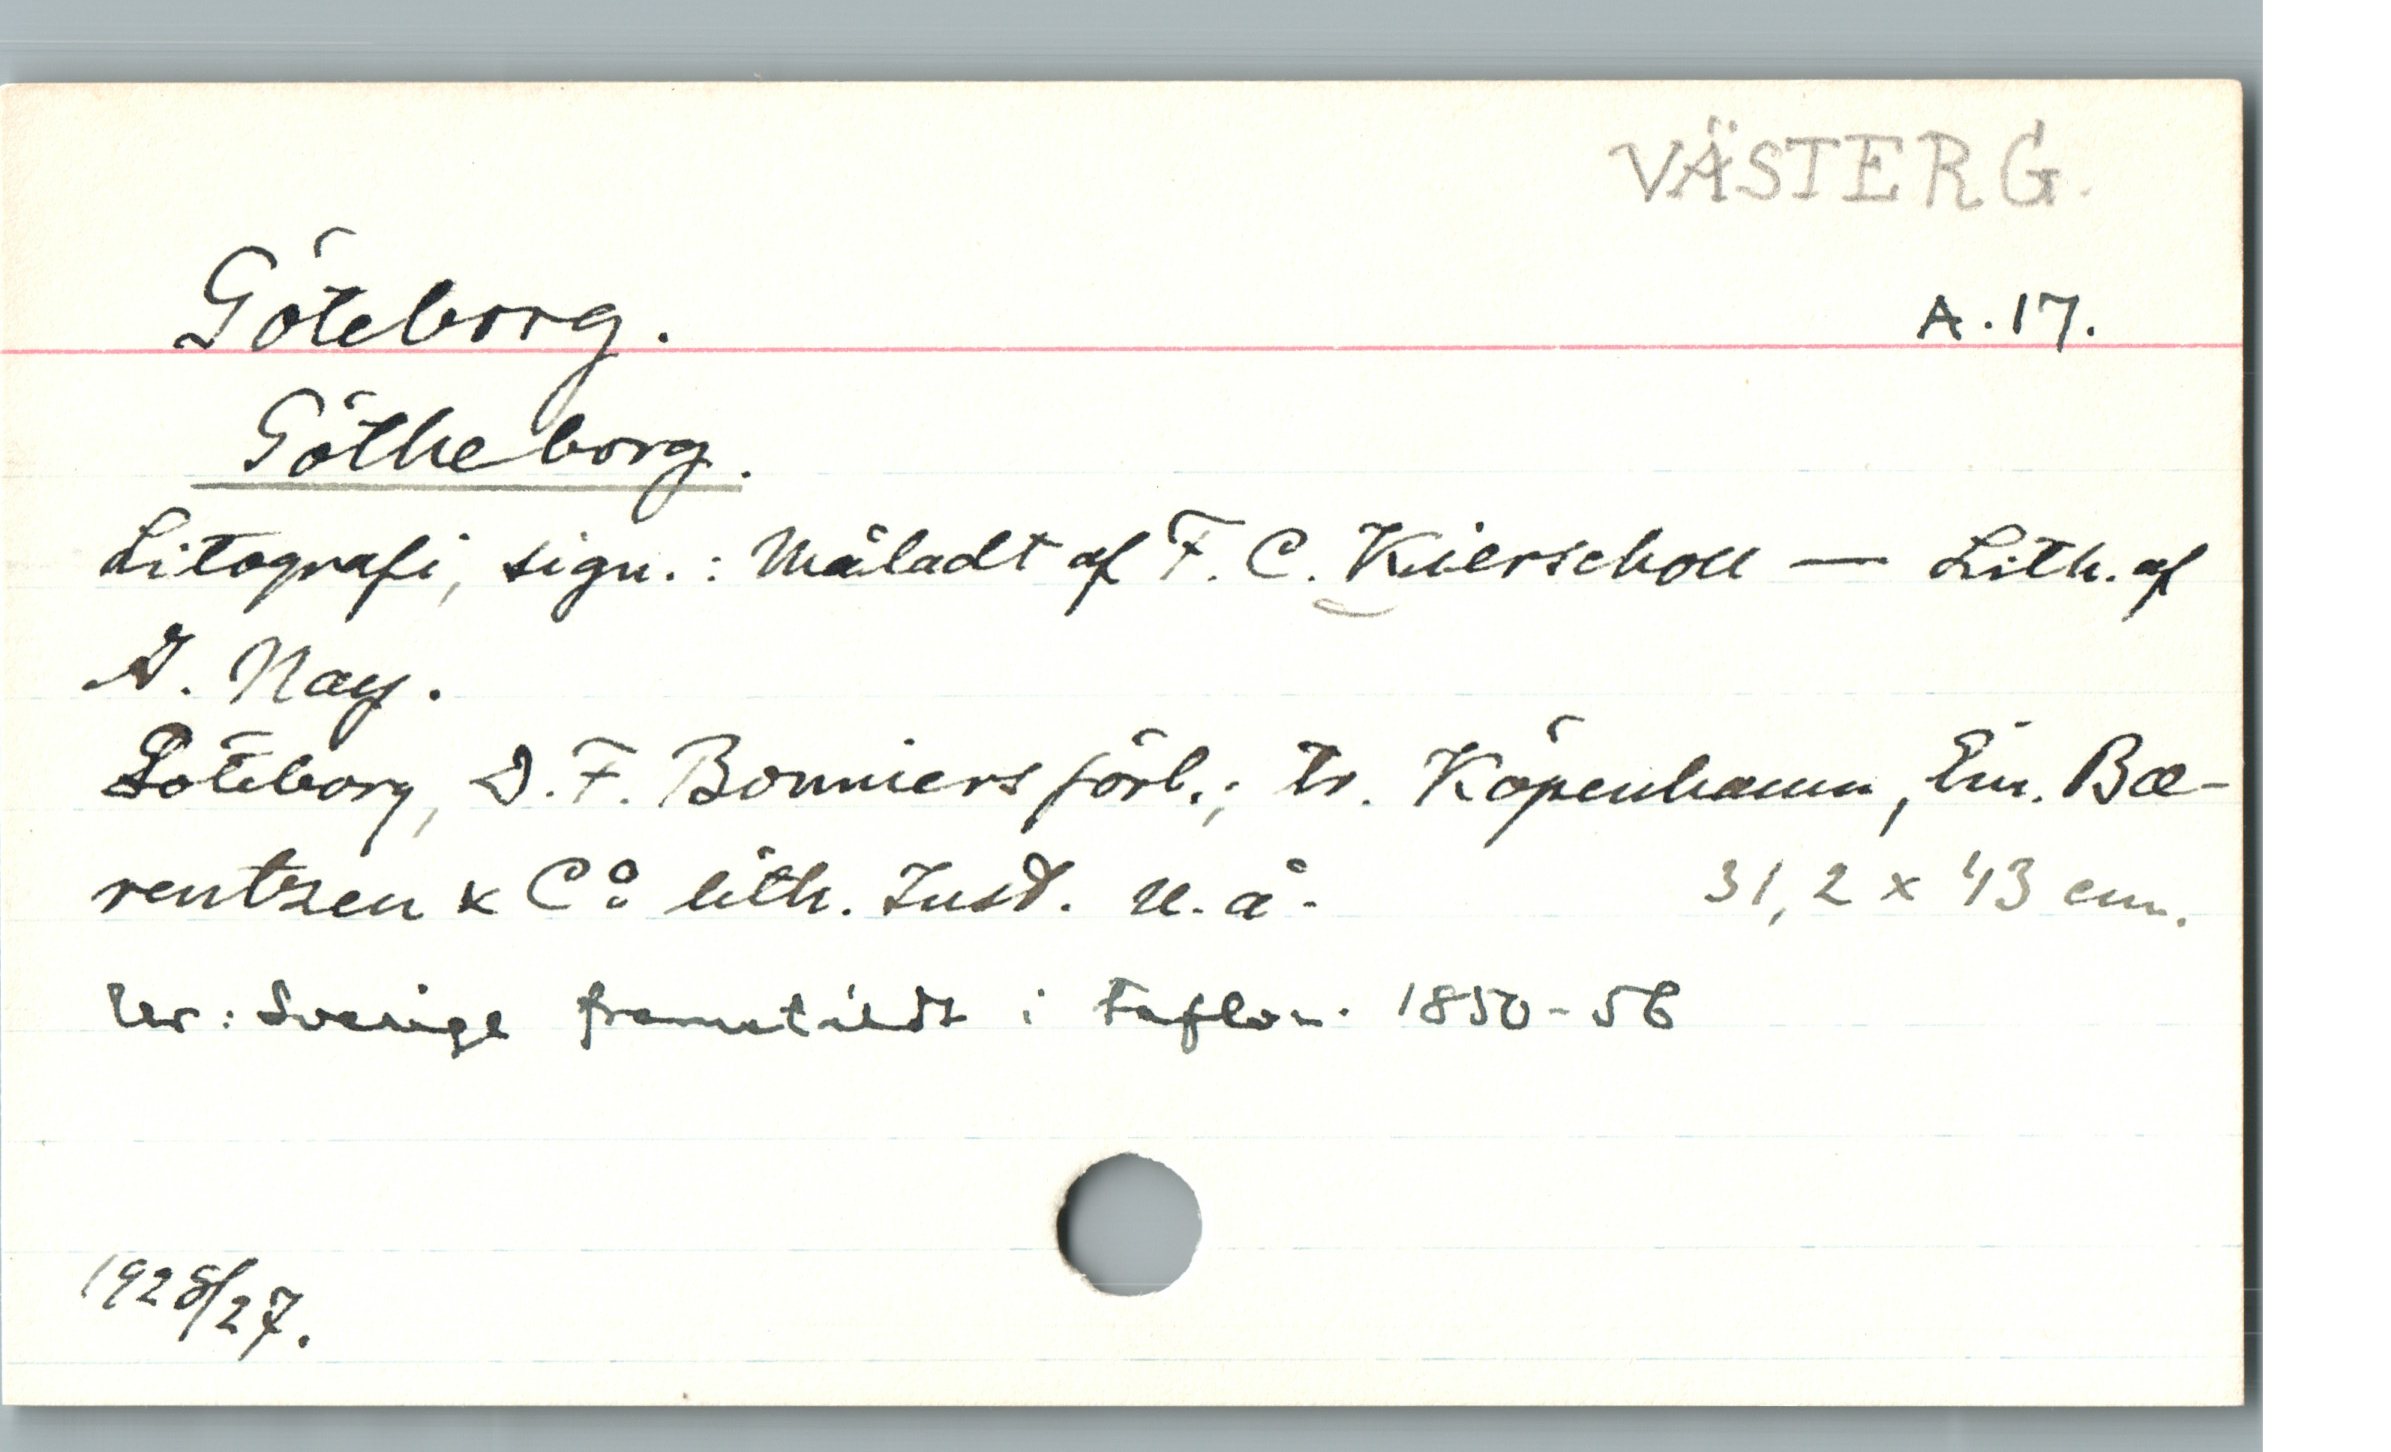 VÄSTERG.
Göteborg. A.17.
Götheborg.
Litografi, sign.: Måladt af F. C. Kierschou — Lith. af
A. Nay.
Göteborg, D. F. Bonniers förl.; tr. Köpenhamn, Em. Bæ-
rentzen & Cº lith. Inst. u.å. 31,2 x 43 cm.
Ur: Sverige framstäldt i Taflor. 1850-56
1928/27.